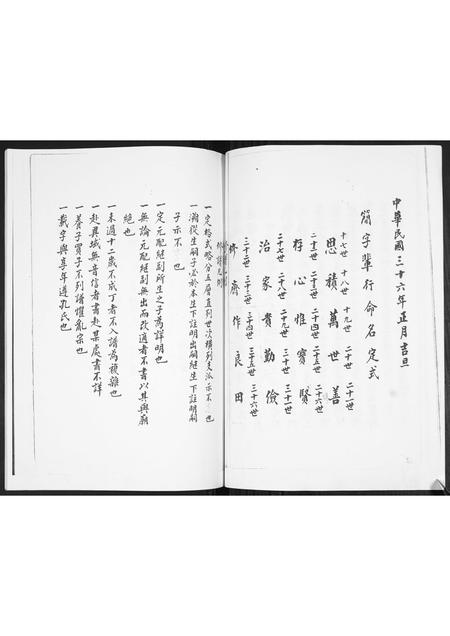 中華民國三十六年正月吉旦
簡字輩行命名定式
十七世 十八世 十九世 二十世 二十一世
思積萬世善
二十二世 二十三世 二十四世 二十五世 二十六世
存心惟寶賢
二十七世 二十八世 二十九世 三十世 三十一世
治家貴勤儉
三十二世 三十三世 三十四世 三十五世 三十六世
修齊作良田
修譜凡例
一定格式略分五層直列世次橫列支派示不 也
一濔從生嗣子必於本生下註明出嗣繼生下註明嗣
子示不 也
一定元配繼副所生之子為詳明也
一無論元配繼副無出而改適者不書以其與廟
絕也
一未過十二歲不成丁者不入譜為複雜也
一赴異域無音信者書赴某處書不詳
一養子買子不列譜懼亂宗也
一載字與享年遵孔氏也